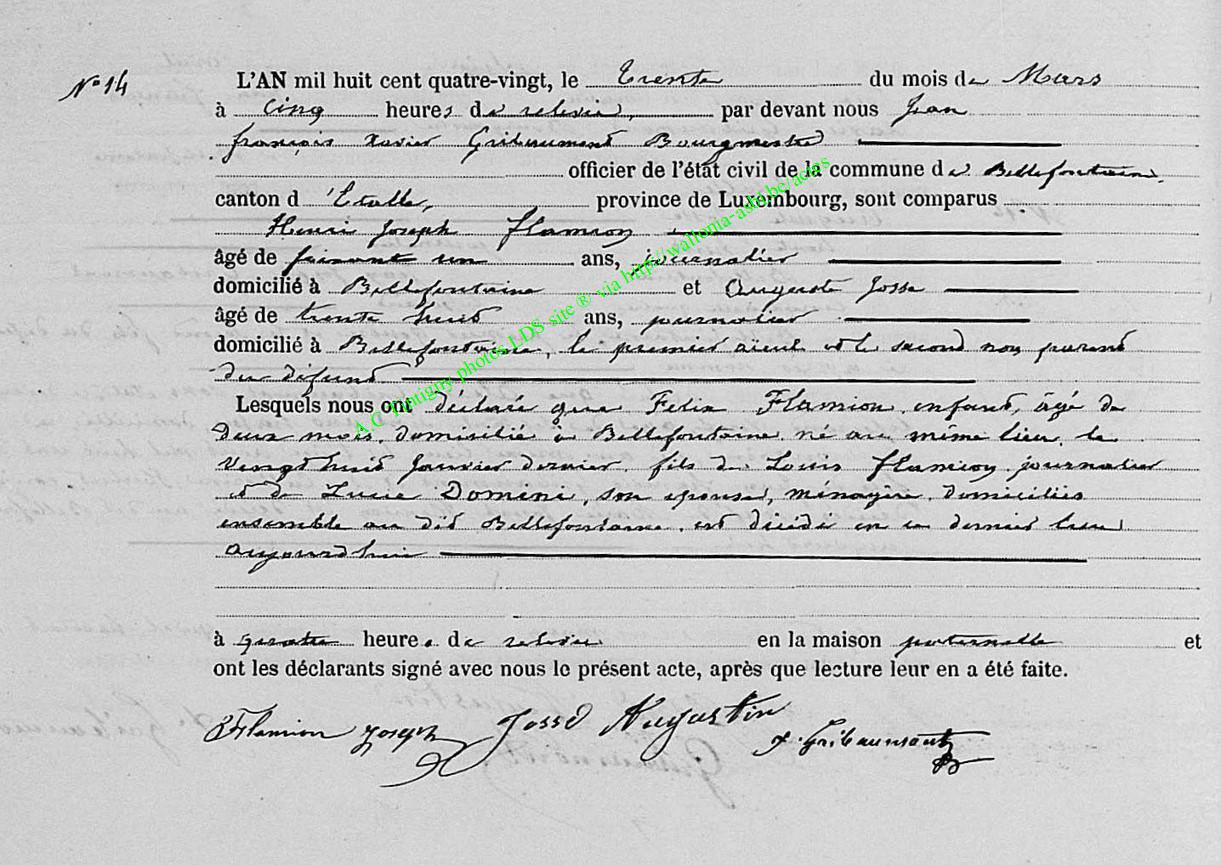 N° 14
L'AN mil huit cent quatre-vingt, le trente du mois de Mars
à cinq heures de relevée, par devant nous Jean
françois Xavier Gribaumont Bourgmestre
officier de l'état civil de la commune de Bellefontaine,
canton d'Etalle, province de Luxembourg, sont comparus
Henri Joseph Flamion
âgé de soixante un ans, journalier
domicilié à Bellefontaine et Auguste Josse
âgé de trente huit ans, journalier
domicilié à Bellefontaine, le premier aïeul et le second non parent
du défunt
Lesquels nous ont déclaré que Felix Flamion, enfant, âgé de
deux mois, domicilié à Bellefontaine né au même lieu, le
vingt huit Janvier dernier, fils de Louis Flamion, journalier
et de Lucie Domini, son épouse, ménagère, domiciliés
ensemble au dit Bellefontaine, est décédé en ce dernier lieu
aujourd'hui
à quatre heures de relevée en la maison paternelle et
ont les déclarants signé avec nous le présent acte, après que lecture leur en a été faite.
Flamion Joseph Josse Augustin x. Gribaumont
photos LDS site ® via http://wallonia-asbl.be/actes